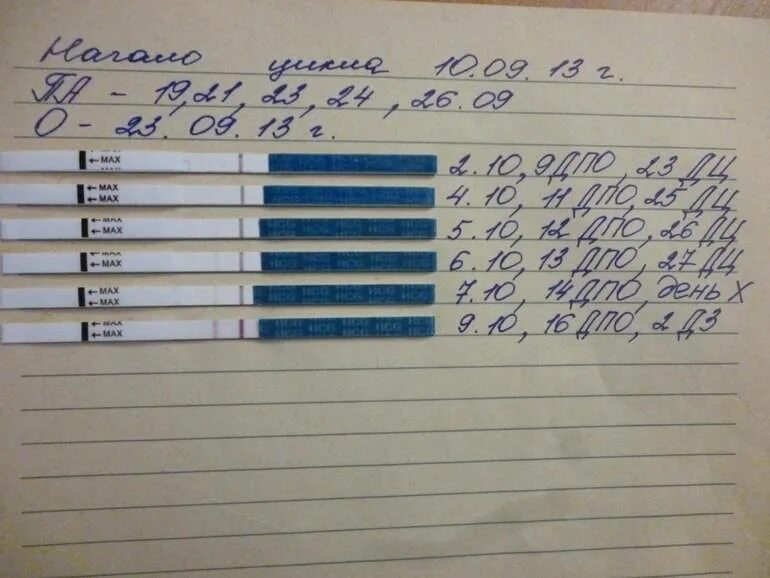 Начало цикла 10.09.13 г.
ПА - 19,21, 23, 24, 26.09
О - 23. 09.13 г.
←MAX
2.10, 9ДПО, 23 ДЦ
←MAX
←MAX
4.10, 11 ДПО, 25 ДЦ
←MAX
←MAX
HCG HCG HCG HCG
5.10, 12 ДПО, 26 ДЦ
←MAX
←MAX
HCG HCG HCG
6.10, 13 ДПО, 27 ДЦ
←MAX
←MAX
HCG HCG HCG
7.10, 14 ДПО, день Х
←MAX
←MAX
HCG HCG HCG HCG
9.10, 16 ДПО, 2 ДЗ